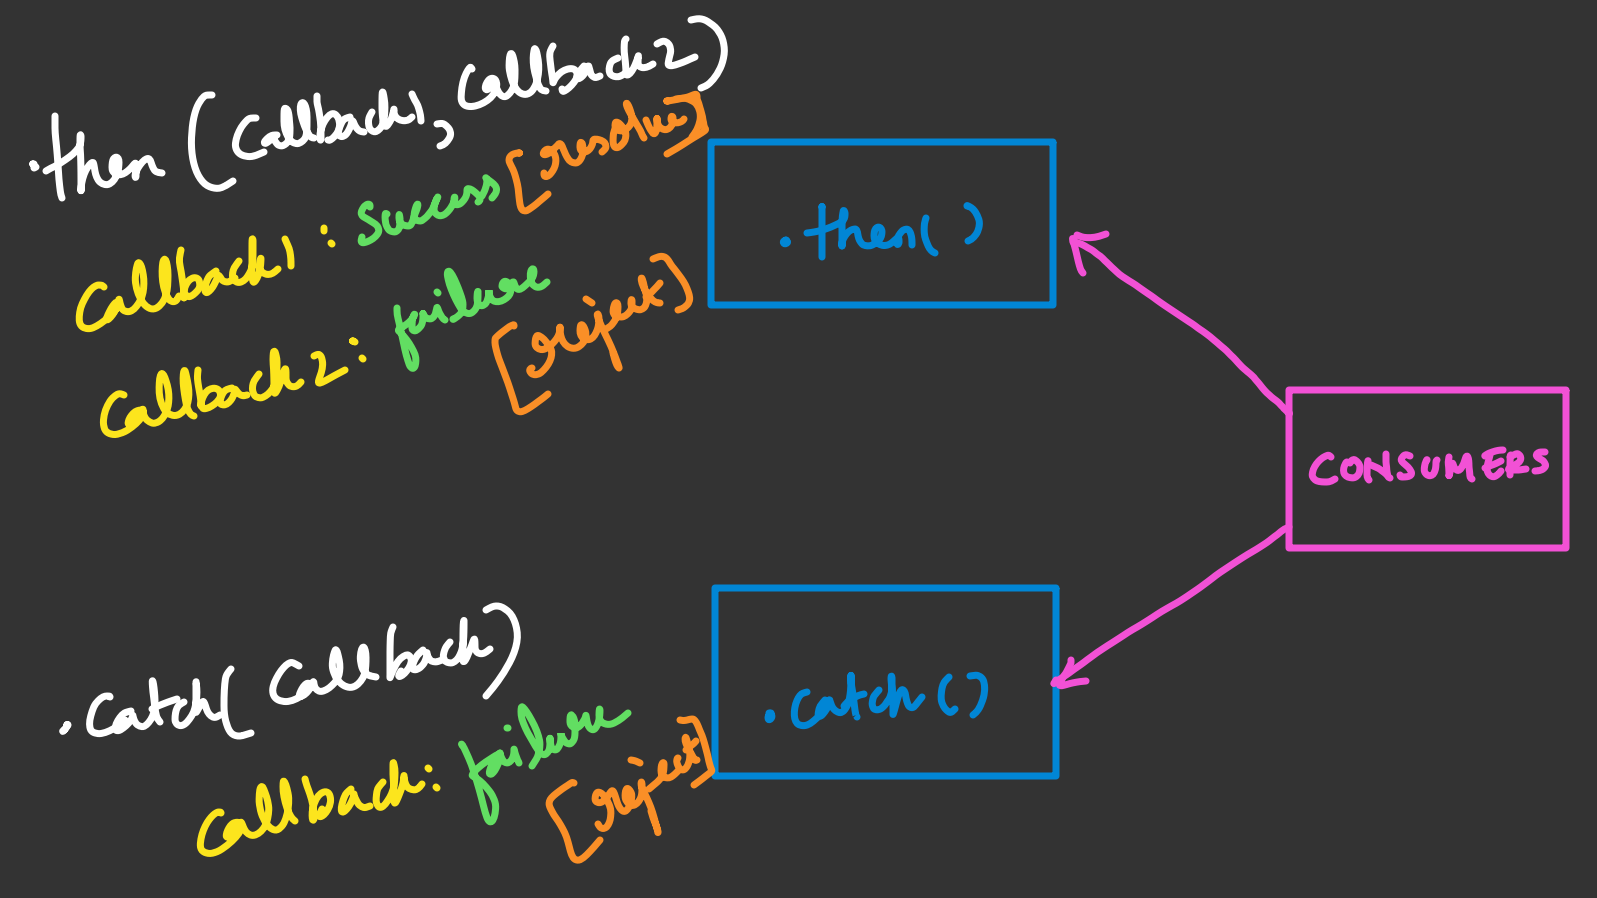 .then (Callback1, Callback2)
Callback1 : success [resolve]
Callback2 : failure [reject]
.then( )
CONSUMERS
.catch( Callback)
Callback: failure [reject]
.catch ( )